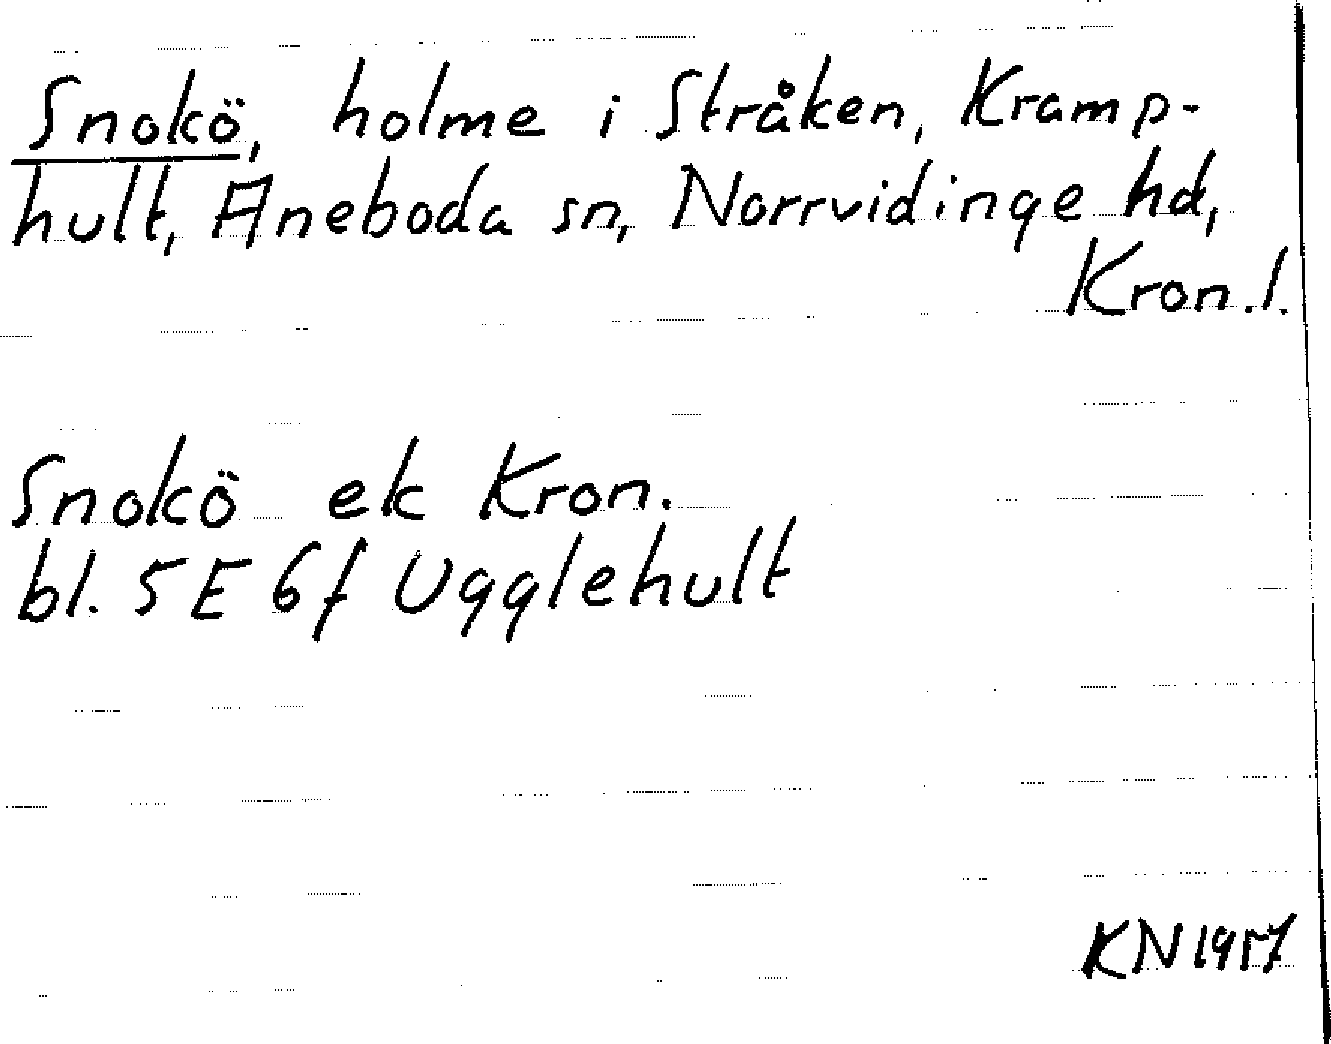 Snokö, holme i Stråken, Kramp-
hult, Aneboda sn, Norrvidinge hd,
Kron.l.
Snokö ek Kron.
bl. 5E 6f Ugglehult
KN 1957